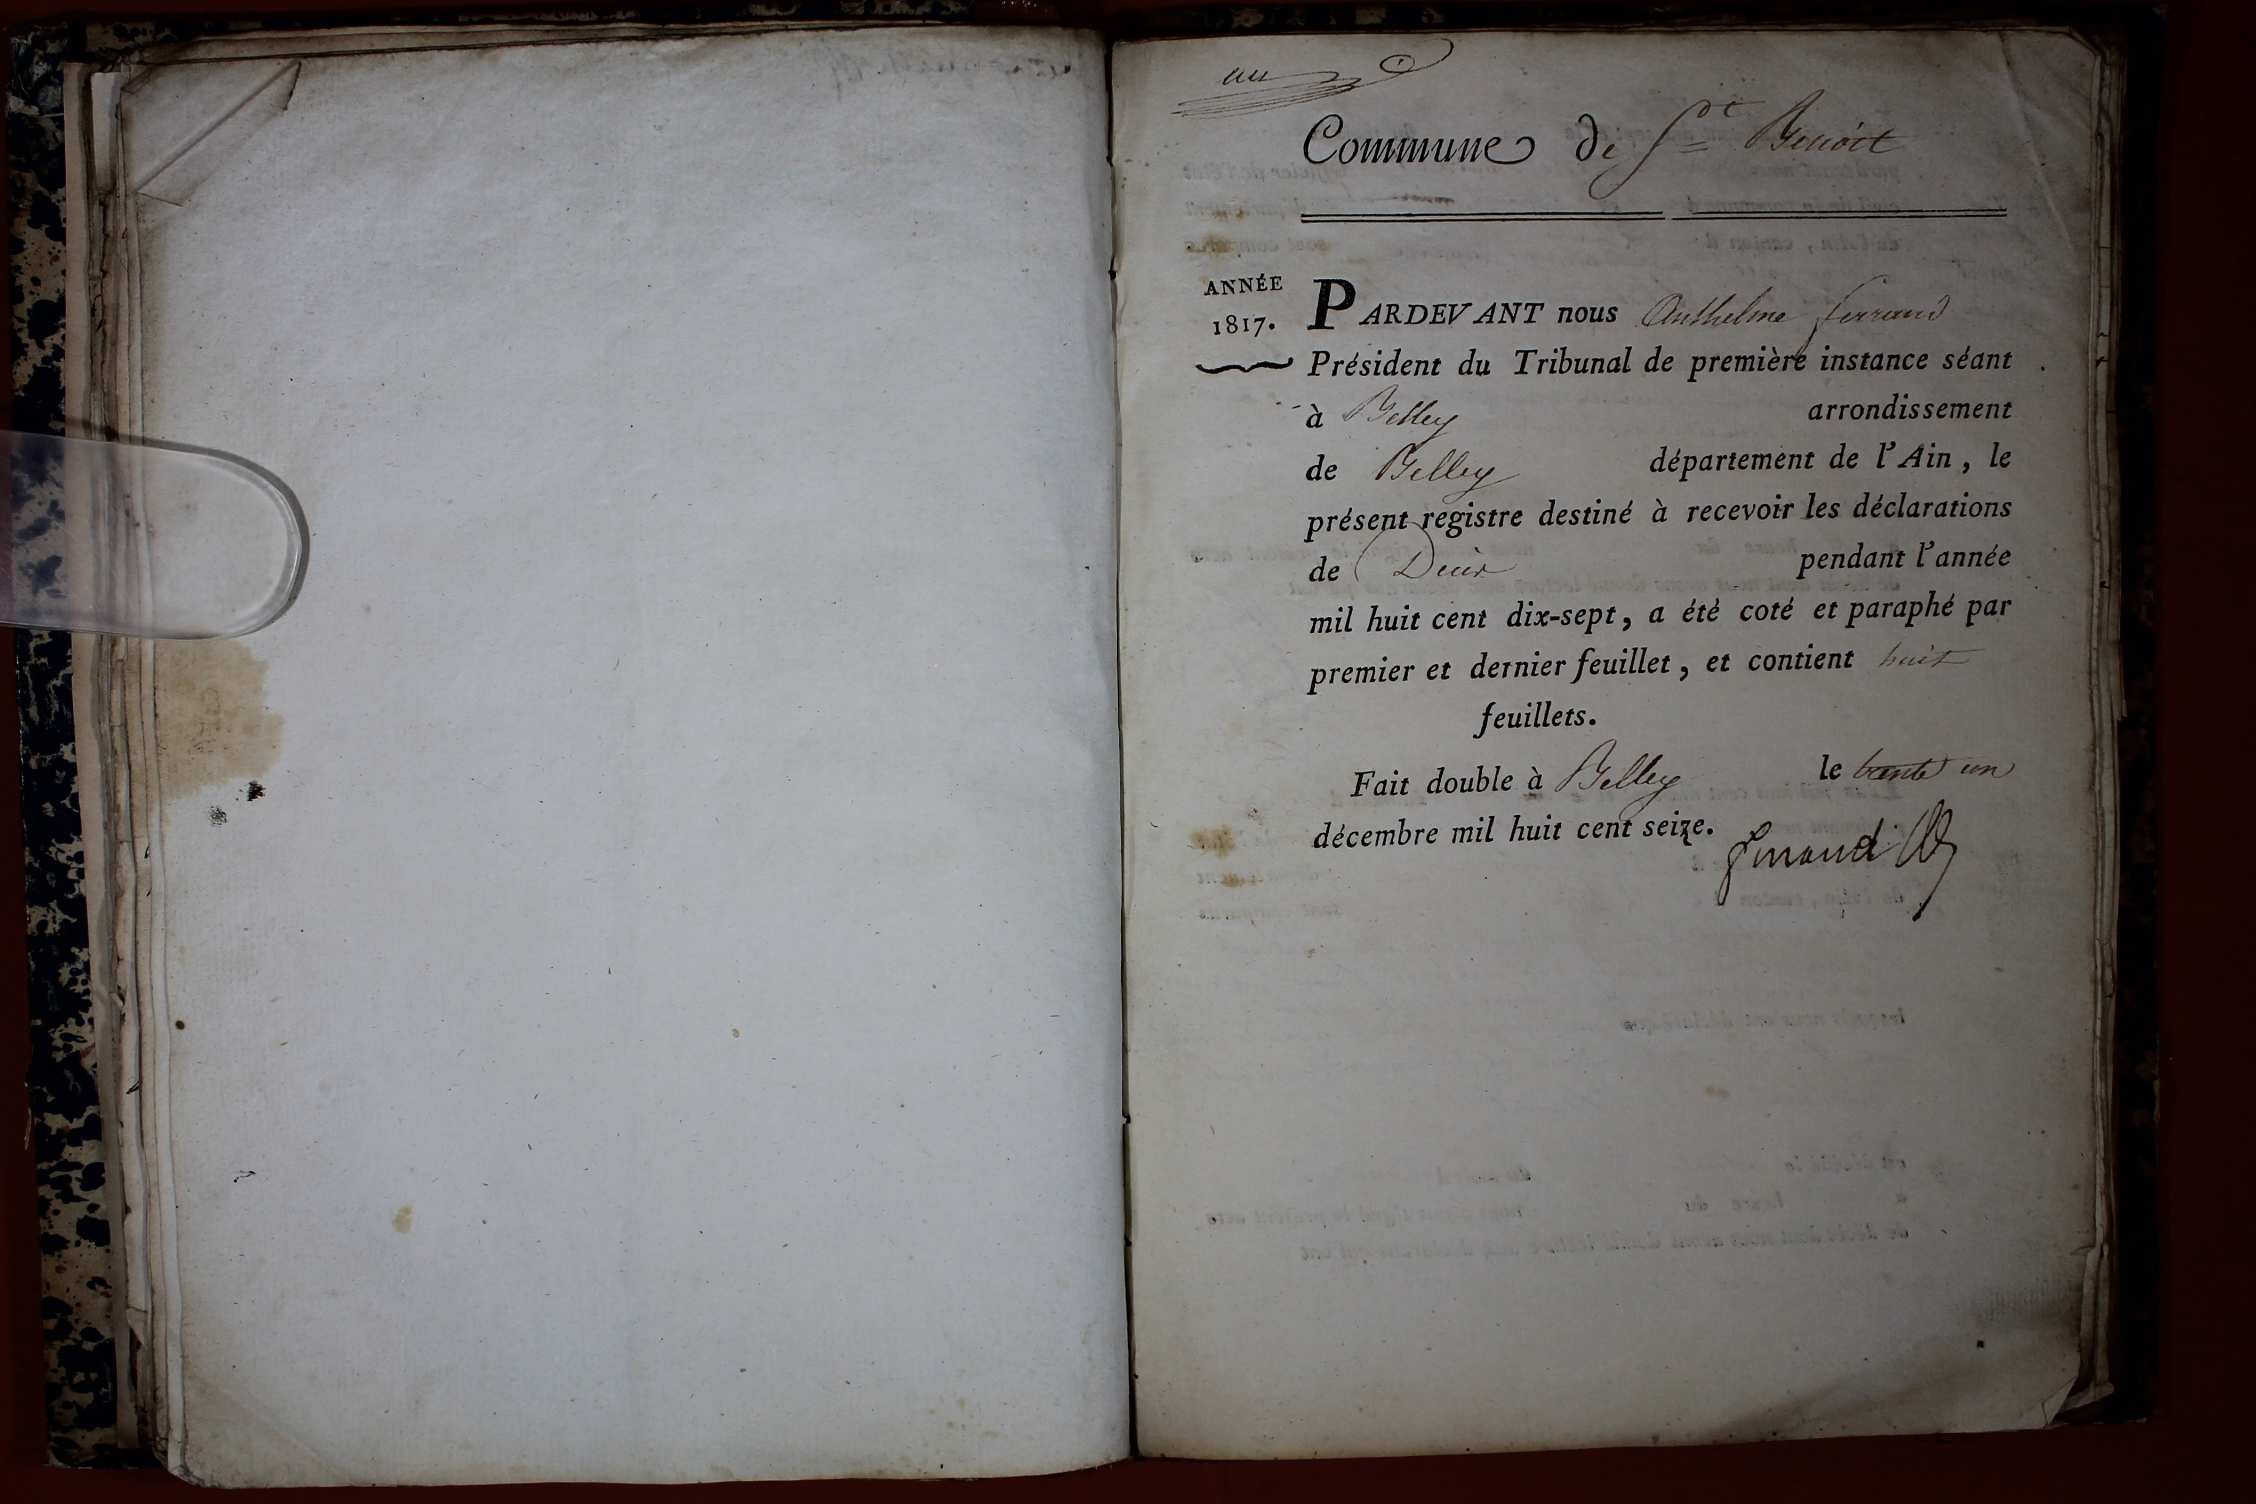 Commune de St Benoit
ANNÉE
1817.
PARDEVANT nous Anthelme ferrand
Président du Tribunal de première instance séant
à Belley arrondissement
de Belley département de l'Ain, le
présent registre destiné à recevoir les déclarations
de Décès pendant l'année
mil huit cent dix-sept, a été coté et paraphé par
premier et dernier feuillet, et contient huit
feuillets.
Fait double à Belley le trente un
décembre mil huit cent seize.